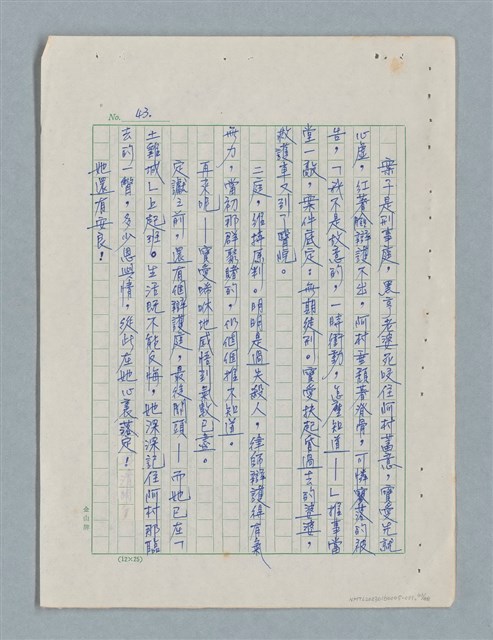 No. 43.
案子是刑事庭,黑吉老婆死咬住阿村蓄意,寶愛先就
心虛,紅著臉辯護不出。阿村垂頭著脊骨,可憐寶落的被
告,「我不是故意的,一時衝動,怎麼知道——」推事當
堂一敲,案件底定:無期徒刑。寶愛扶起昏過去的婆婆,
救護車又到了醫院。
二庭,維持原判。明明是過失殺人,律師辯護得有氣
無力,當初那群聚賭的,仍個個推不知道。
再來呢——寶愛嘶啞地感悟到氣數已盡。
定讞之前,還有個辯護庭,最後關頭——而她已在「
土雞城」上起班。生活既不能反悔,她深深記住阿村那臨
去的一瞥,多少恩與情,從此在她心裏落定!
她還有安良!
金山牌
(12×25)